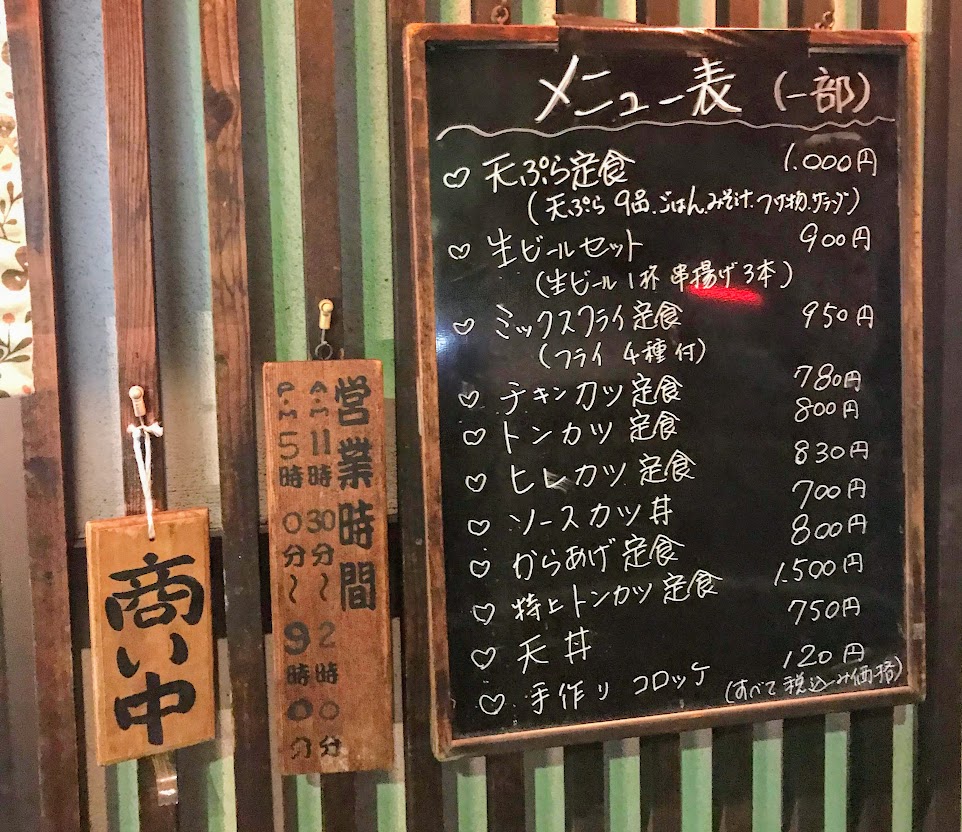 メニュー表 (一部)
♡ 天ぷら定食 1.000円
(天ぷら 9品、ごはん、みそ汁、つけ物、サラダ)
♡ 生ビールセット 900円
(生ビール 1杯 串揚げ 3本)
♡ ミックスフライ定食 950円
(フライ 4種付)
♡ チキンカツ定食 780円
♡ トンカツ定食 800円
♡ ヒレカツ定食 830円
♡ ソースカツ丼 700円
♡ からあげ定食 800円
♡ 特上トンカツ定食 1.500円
♡ 天丼 750円
♡ 手作りコロッケ 120円
(すべて税込み価格)
営業時間
A.M 11時30分〜2時00分
P.M 5時00分〜9時00分
商い中